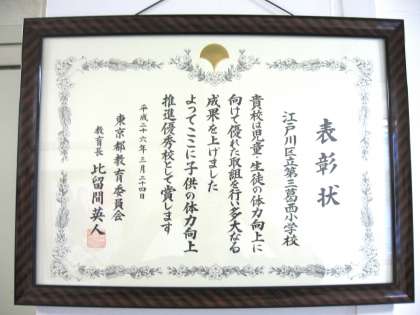 表彰状
江戸川区立第三葛西小学校
貴校は児童・生徒の体力向上に
向けて優れた取組を行い多大なる
成果を上げました
よってここに子供の体力向上
推進優秀校として賞します
平成二十六年三月二十四日
東京都教育委員会
教育長 比留間英人